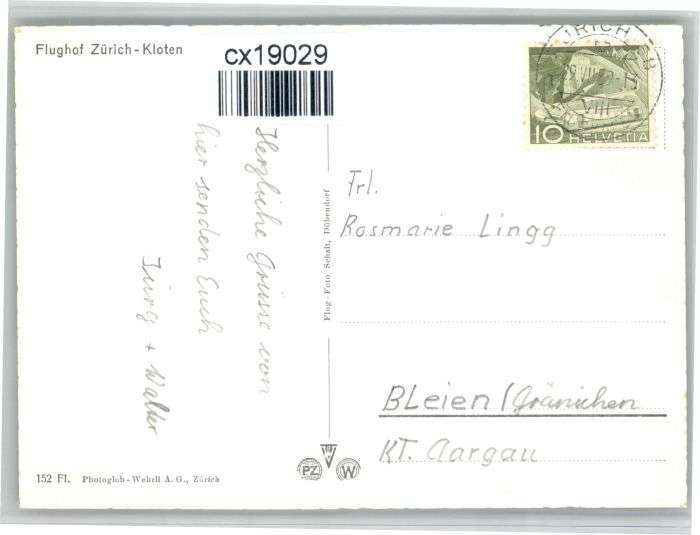 Flughof Zürich-Kloten
cx19029
ZÜRICH
10 HELVETIA
Herzliche Grüsse von
hier senden Euch
Jürg + Walter
Flug-Foto Schait, Dübendorf
Frl.
Rosmarie Lingg
BLeien/Gränichen
KT. Aargau
152 Fl. Photoglob-Wehrli A.G., Zürich
PZ W